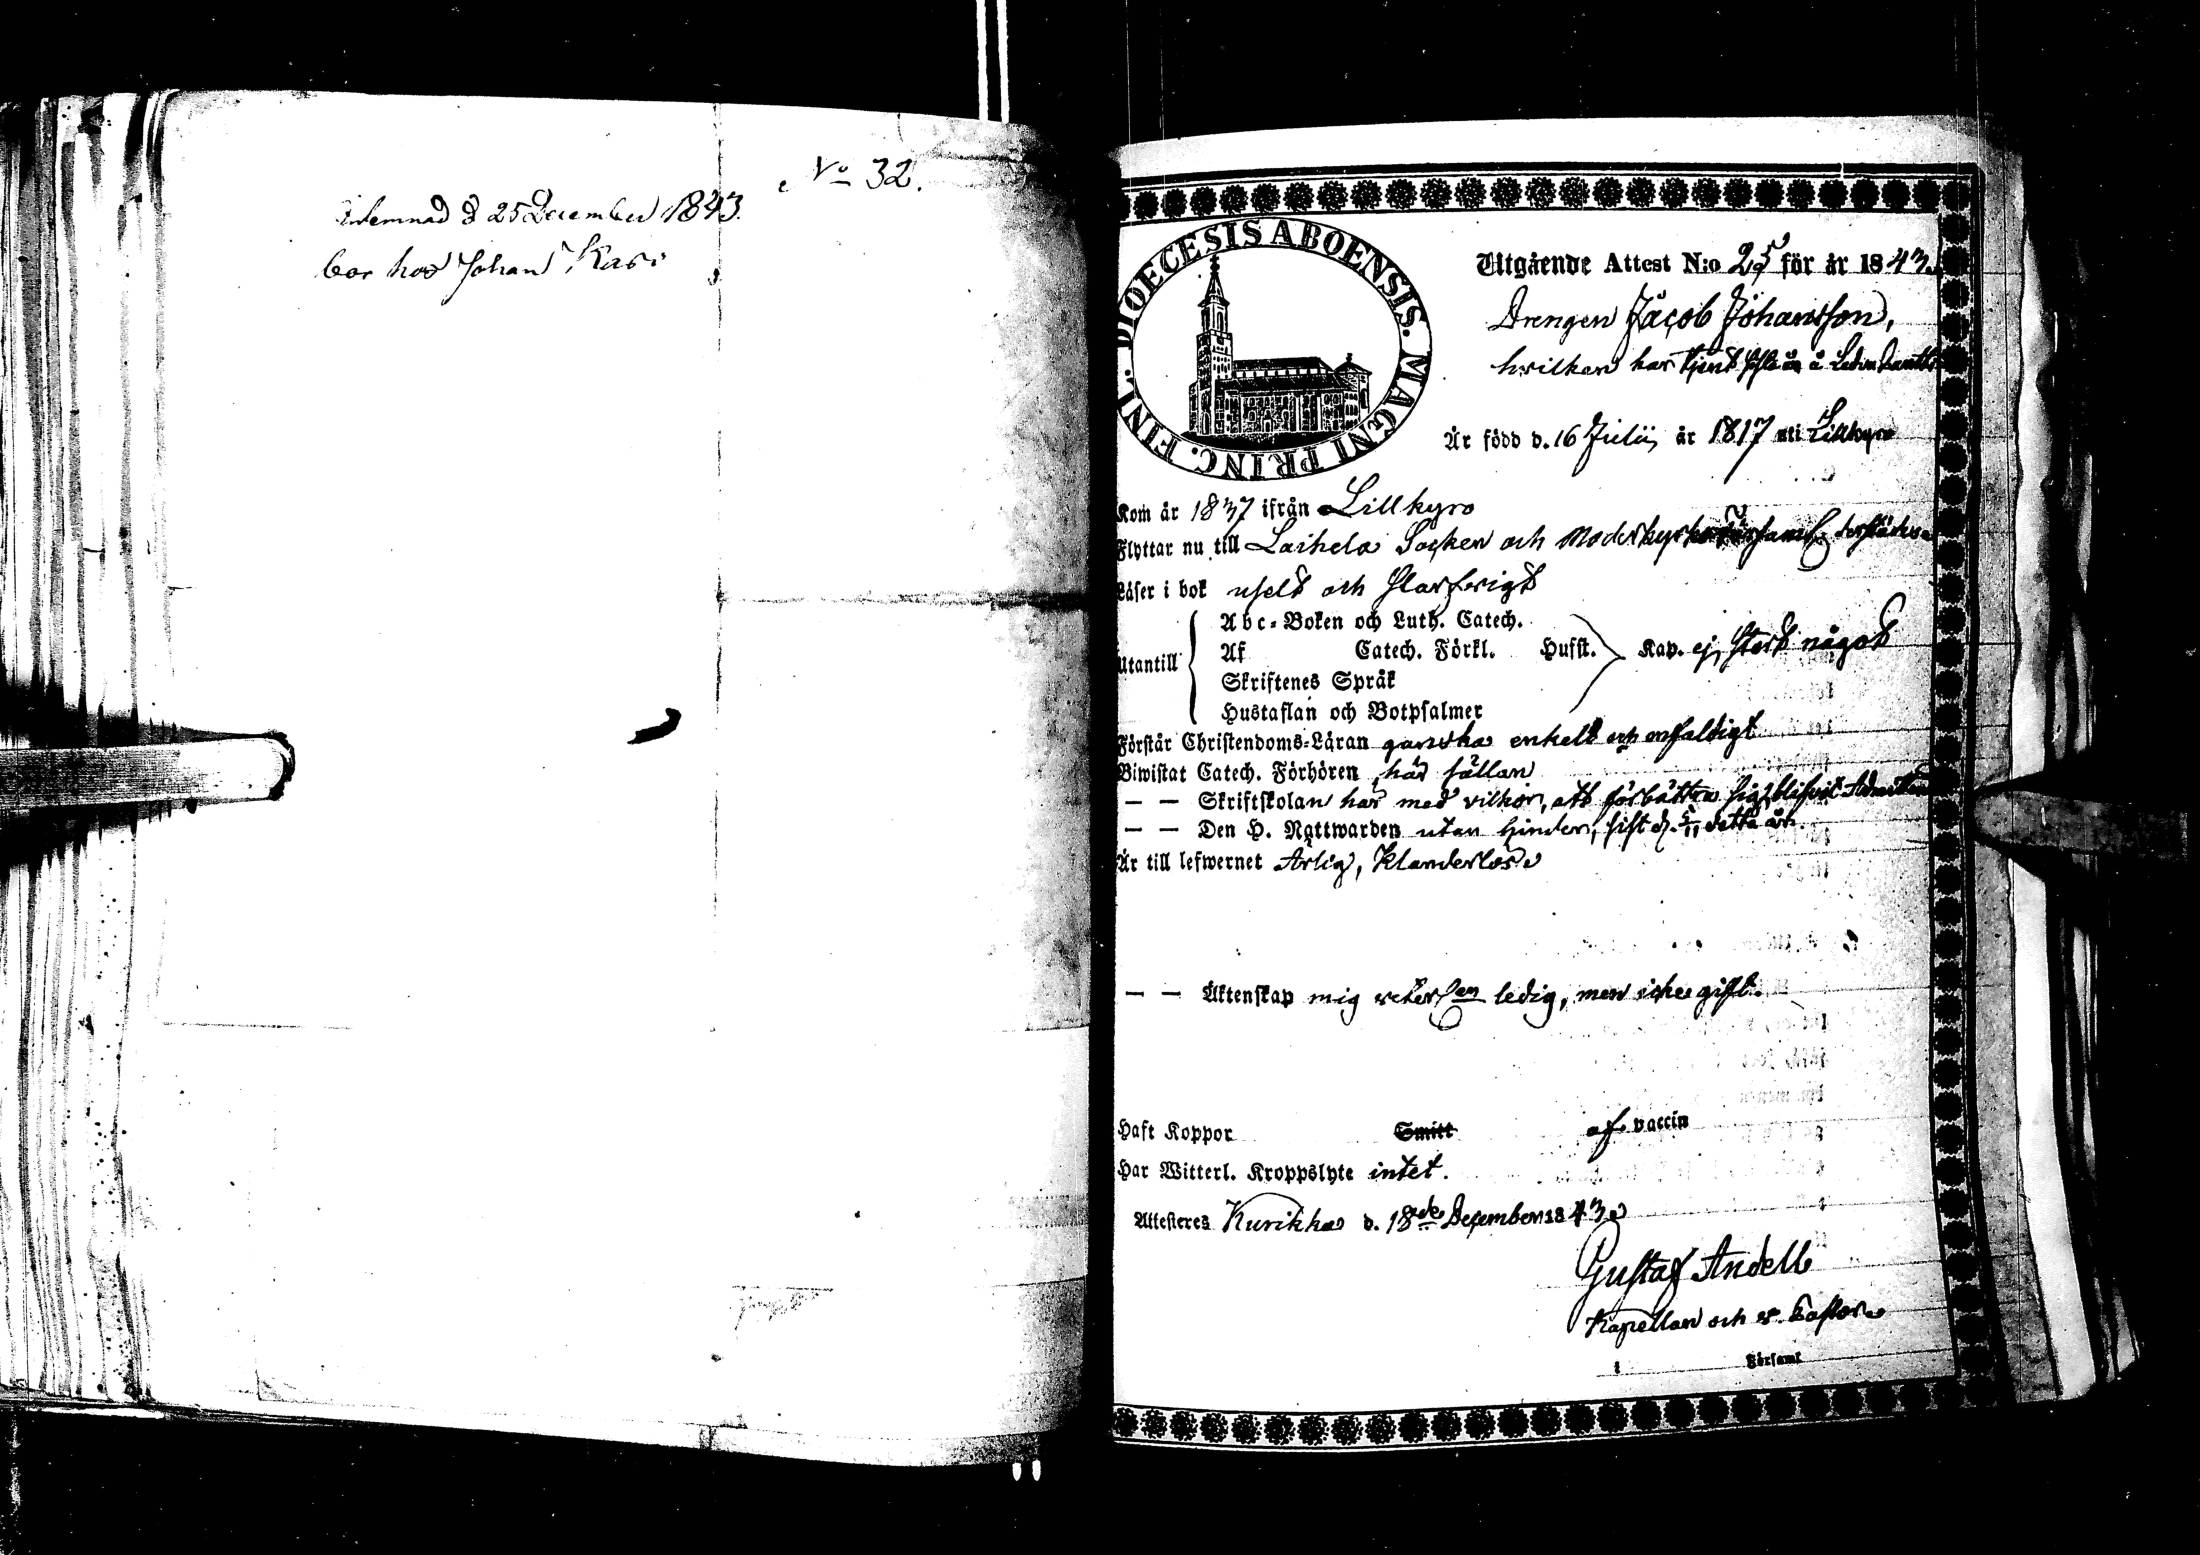 No 32.
Inlemnad d 25 December 1843.
bor hos Johan Kari
FINL. DIOECESIS ABOENSIS. MAGNI PRINC.
Utgående Attest N:o 25 för år 1843.
Drengen Jacob Johansson,
hvilken har tjent sista år å
Är född d. 16 Julii, år 1817 uti Lillkyro
Kom år 1837 ifrån Lillkyro
Flyttar nu till Laihela Socken och Moderkyrko församl. derstädes
Läser i bok uselt och slarfvigt
Utantill
Abc-Boken och Luth. Catech.
Af Catech. Förkl. Husst. Kap. ej stort något
Skriftenes Språk
Hustaflan och Botpsalmer
Förstår Christendoms-Läran ganska enkelt och enfaldigt
Biwistat Catech. Förhören här sällan
— — Skriftskolan har med vilkor, att förbättra sig, blifvit
— — Den H. Nattwarden utan hinder, sist d. 5/11 detta år.
Är till lefwernet Ärlig, Klanderlös
— — Äktenskap mig veterl:en ledig, men icke gift.
Haft Koppor Smitt af vaccin
Har Witterl. Kroppslyte intet.
Attesteres Kurikka d. 18de December 1843
Gustaf Andell
Kapellan och v. Pastor
i Församl